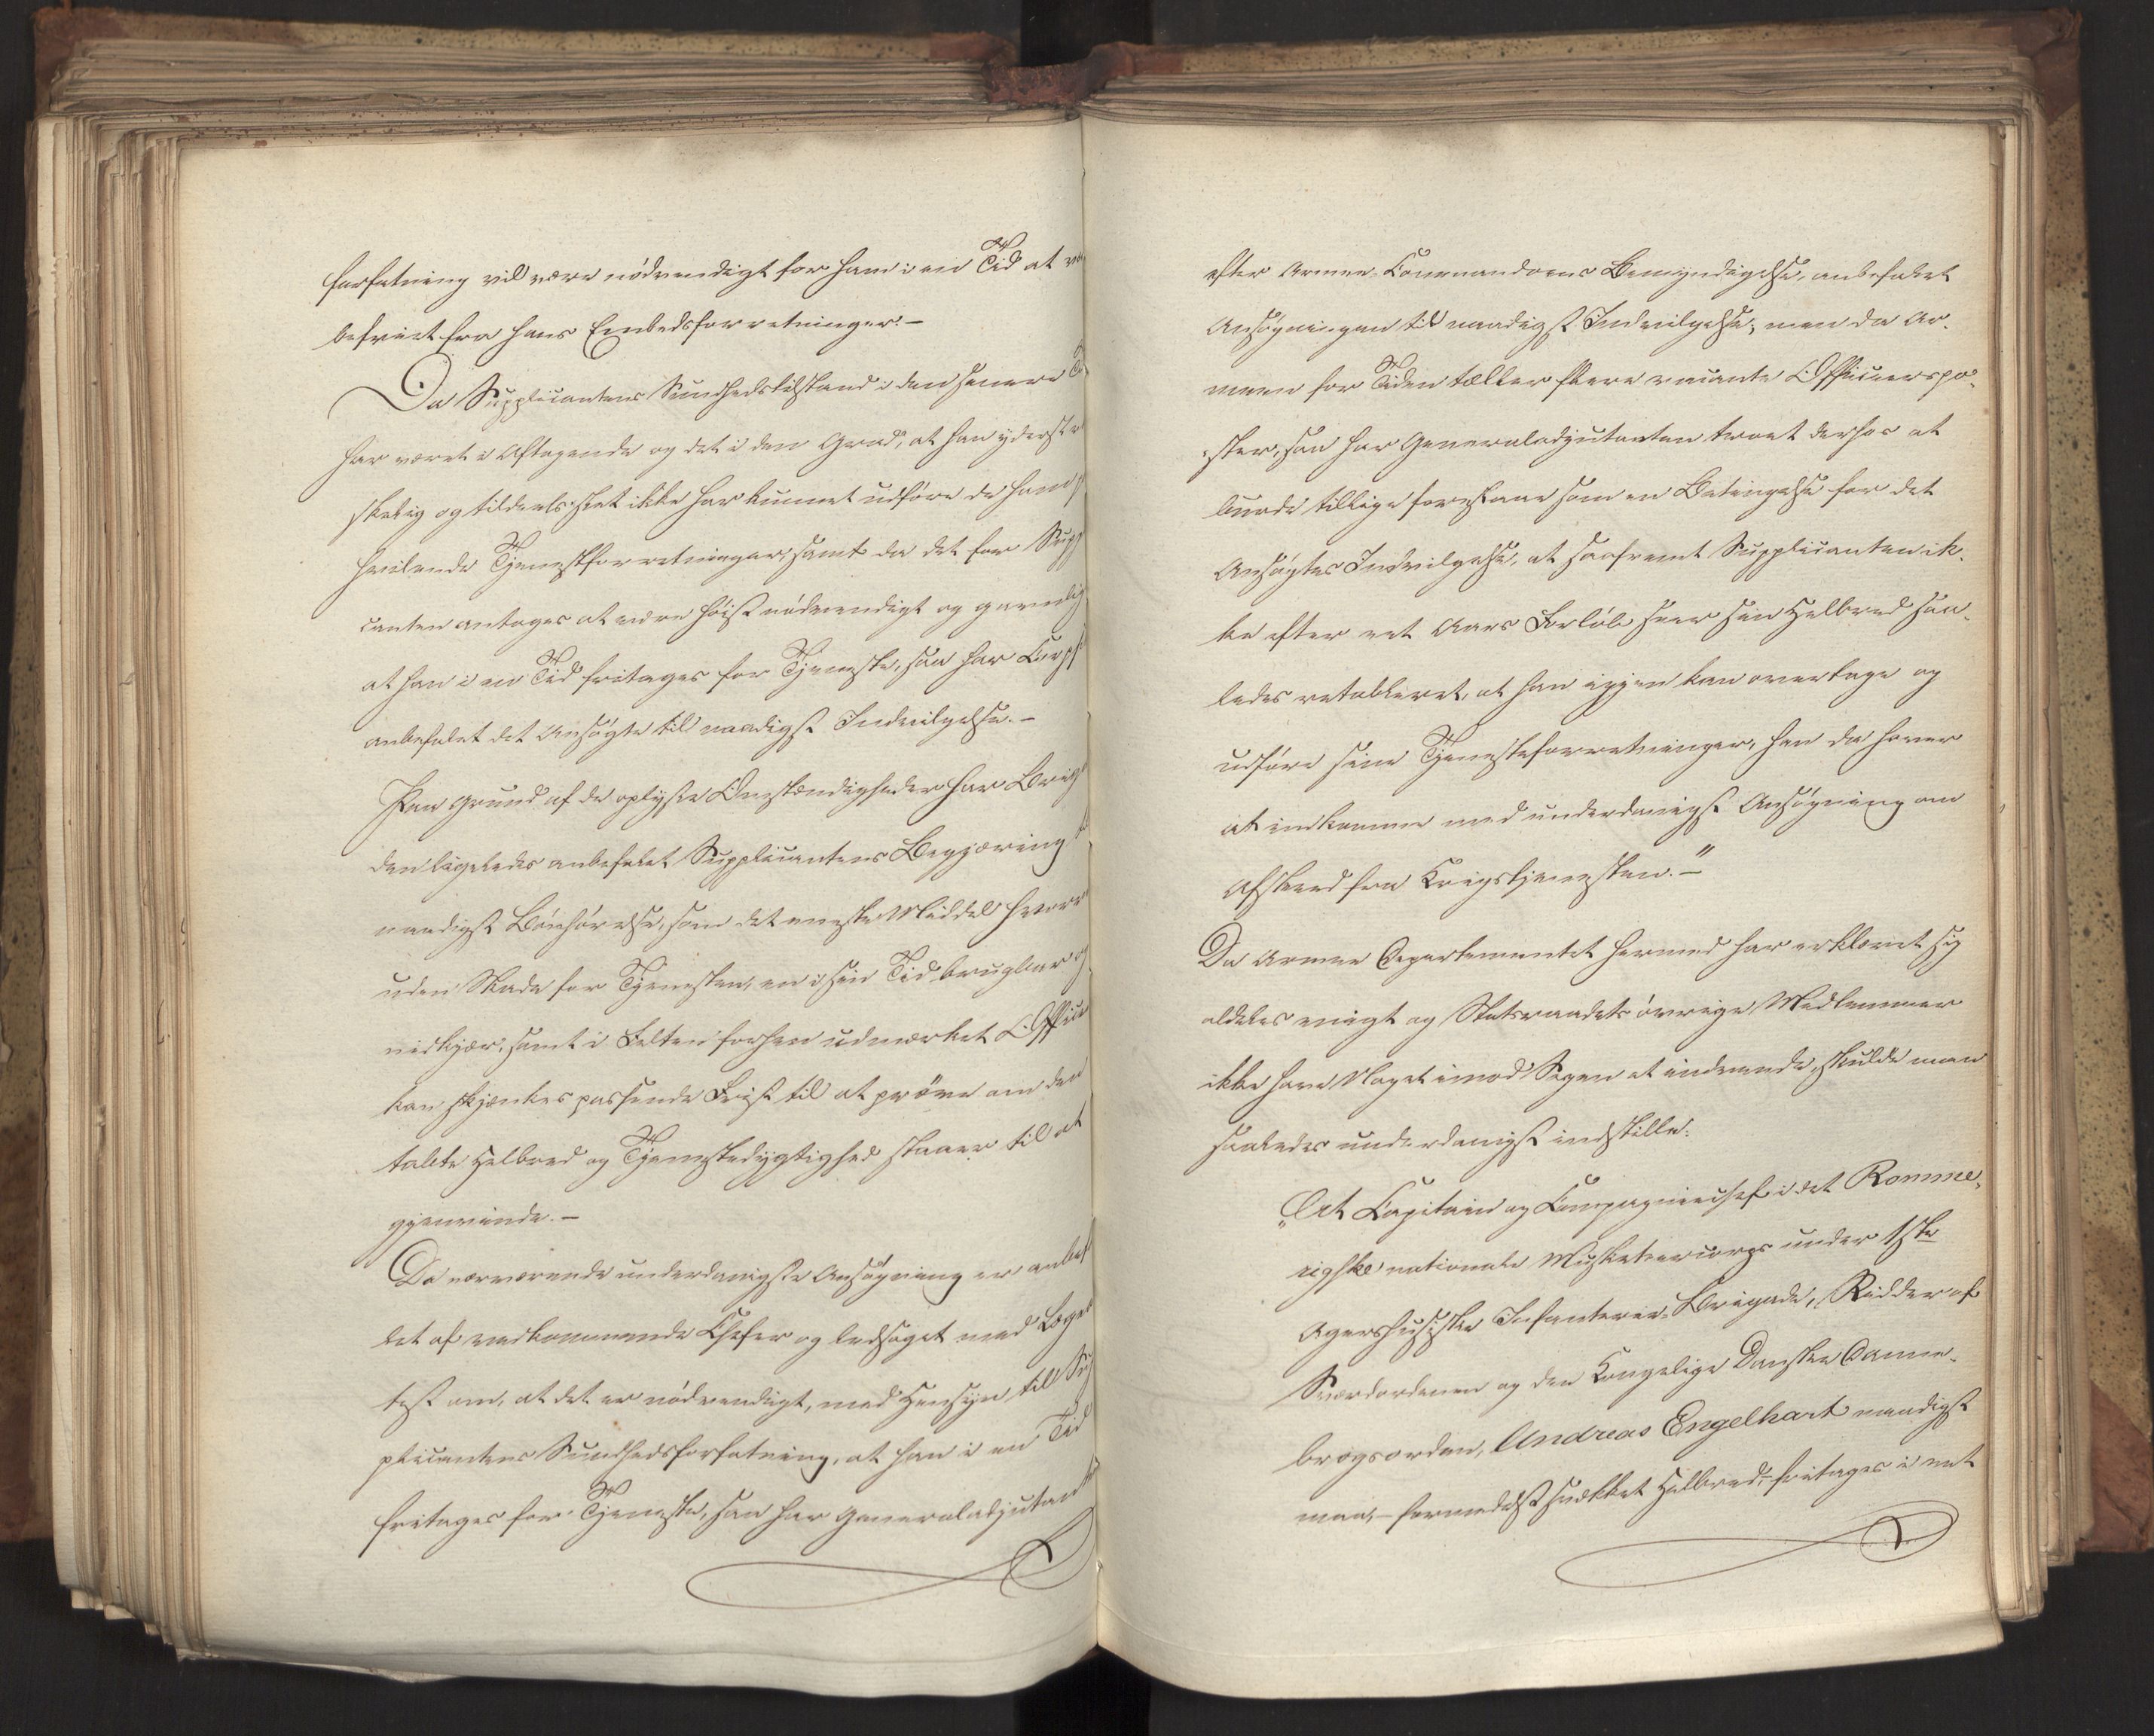 forfatning vil være nödvendigt for ham i en Tid at
befriet fra hans Embedsforretninger. –
Da Supplicantens Sundhedstilstand i den senere
har været i Aftagende og det i den Grad, at han yderst
skelig og tildeels slet ikke har kunnet udföre de ham
hvilende Tjenestforretninger, samt da det for Supp
canten antages at være höist nödvendigt og gavnlig
at han i en Tid fritages for Tjeneste, saa har
anbefalet det Ansögte til naadigst Indvilgelse. –
Paa Grund af de oplyste Omstændigheder har Brig
den ligeledes anbefalet Supplicantens Begjæring
naadigst Bönhörelse, som det eneste Middel hvor
uden Skade for Tjenesten, en i sin Tid brugbar og
nidkjær, samt i Felten forhen udmærket Officie
kan skjænkes passende Frist til at pröve om den
tabte Helbred og Tjenestedygtighed staaer til at
gjenvinde. –
Da nærværende underdanigste Ansögning er anbef
let af vedkommende Chefer og ledsaget med Læge
test om, at det er nödvendigt, med Hensyn til Sup
plicantens Sundhedsforfatning, at han i en Tid
fritages for Tjeneste, saa har Generaladjutant
efter Armee-Commandoens Bemyndigelse, anbefalet
Ansögningen til naadigst Indvilgelse; men da Ar-
meen for Tiden tæller flere vacante Officierspo-
ster, saa har Generaladjutanten troet derhos at
burde tillige foreslaae som en Betingelse for det
Ansögtes Indvilgelse, at saafremt Supplicanten ik-
ke efter eet Aars Forlöb seer sin Helbred saa-
ledes retableret, at han igjen kan overtage og
udföre sine Tjenesteforretninger, han da haver
at indkomme med underdanigst Ansögning om
Afskeed fra Krigstjenesten." –
Da Armee Departementet hermed har erklæret sig
aldeles enigt og Statsraadets övrige Medlemmer
ikke have Noget imod Sagen at indvende, skulde man
saaledes underdanigst indstille:
"At Capitain og Compagniechef i det Romme-
rigske nationale Musketeercorps under 1ste
Agershusiske Infanterie-Brigade, Ridder af
Sværdordenen og den Kongelige Danske Danne-
brogsorden, Andreas Engelhart naadigst
maa, – formedelst svækket Helbred, – fritages i eet